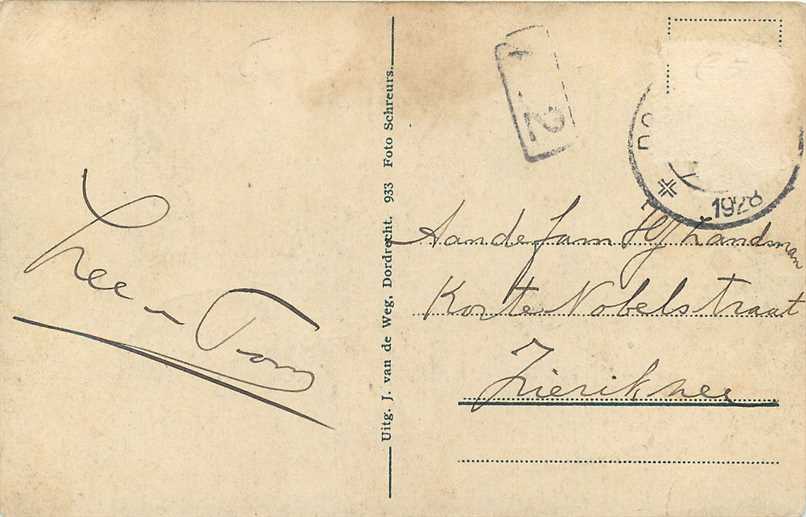 Uitg. J. van de Weg, Dordrecht. 933 Foto Schreurs.
2
DO
1928
Aan de fam Handman
Korte Nobelstraat
Zierikzee
Tom